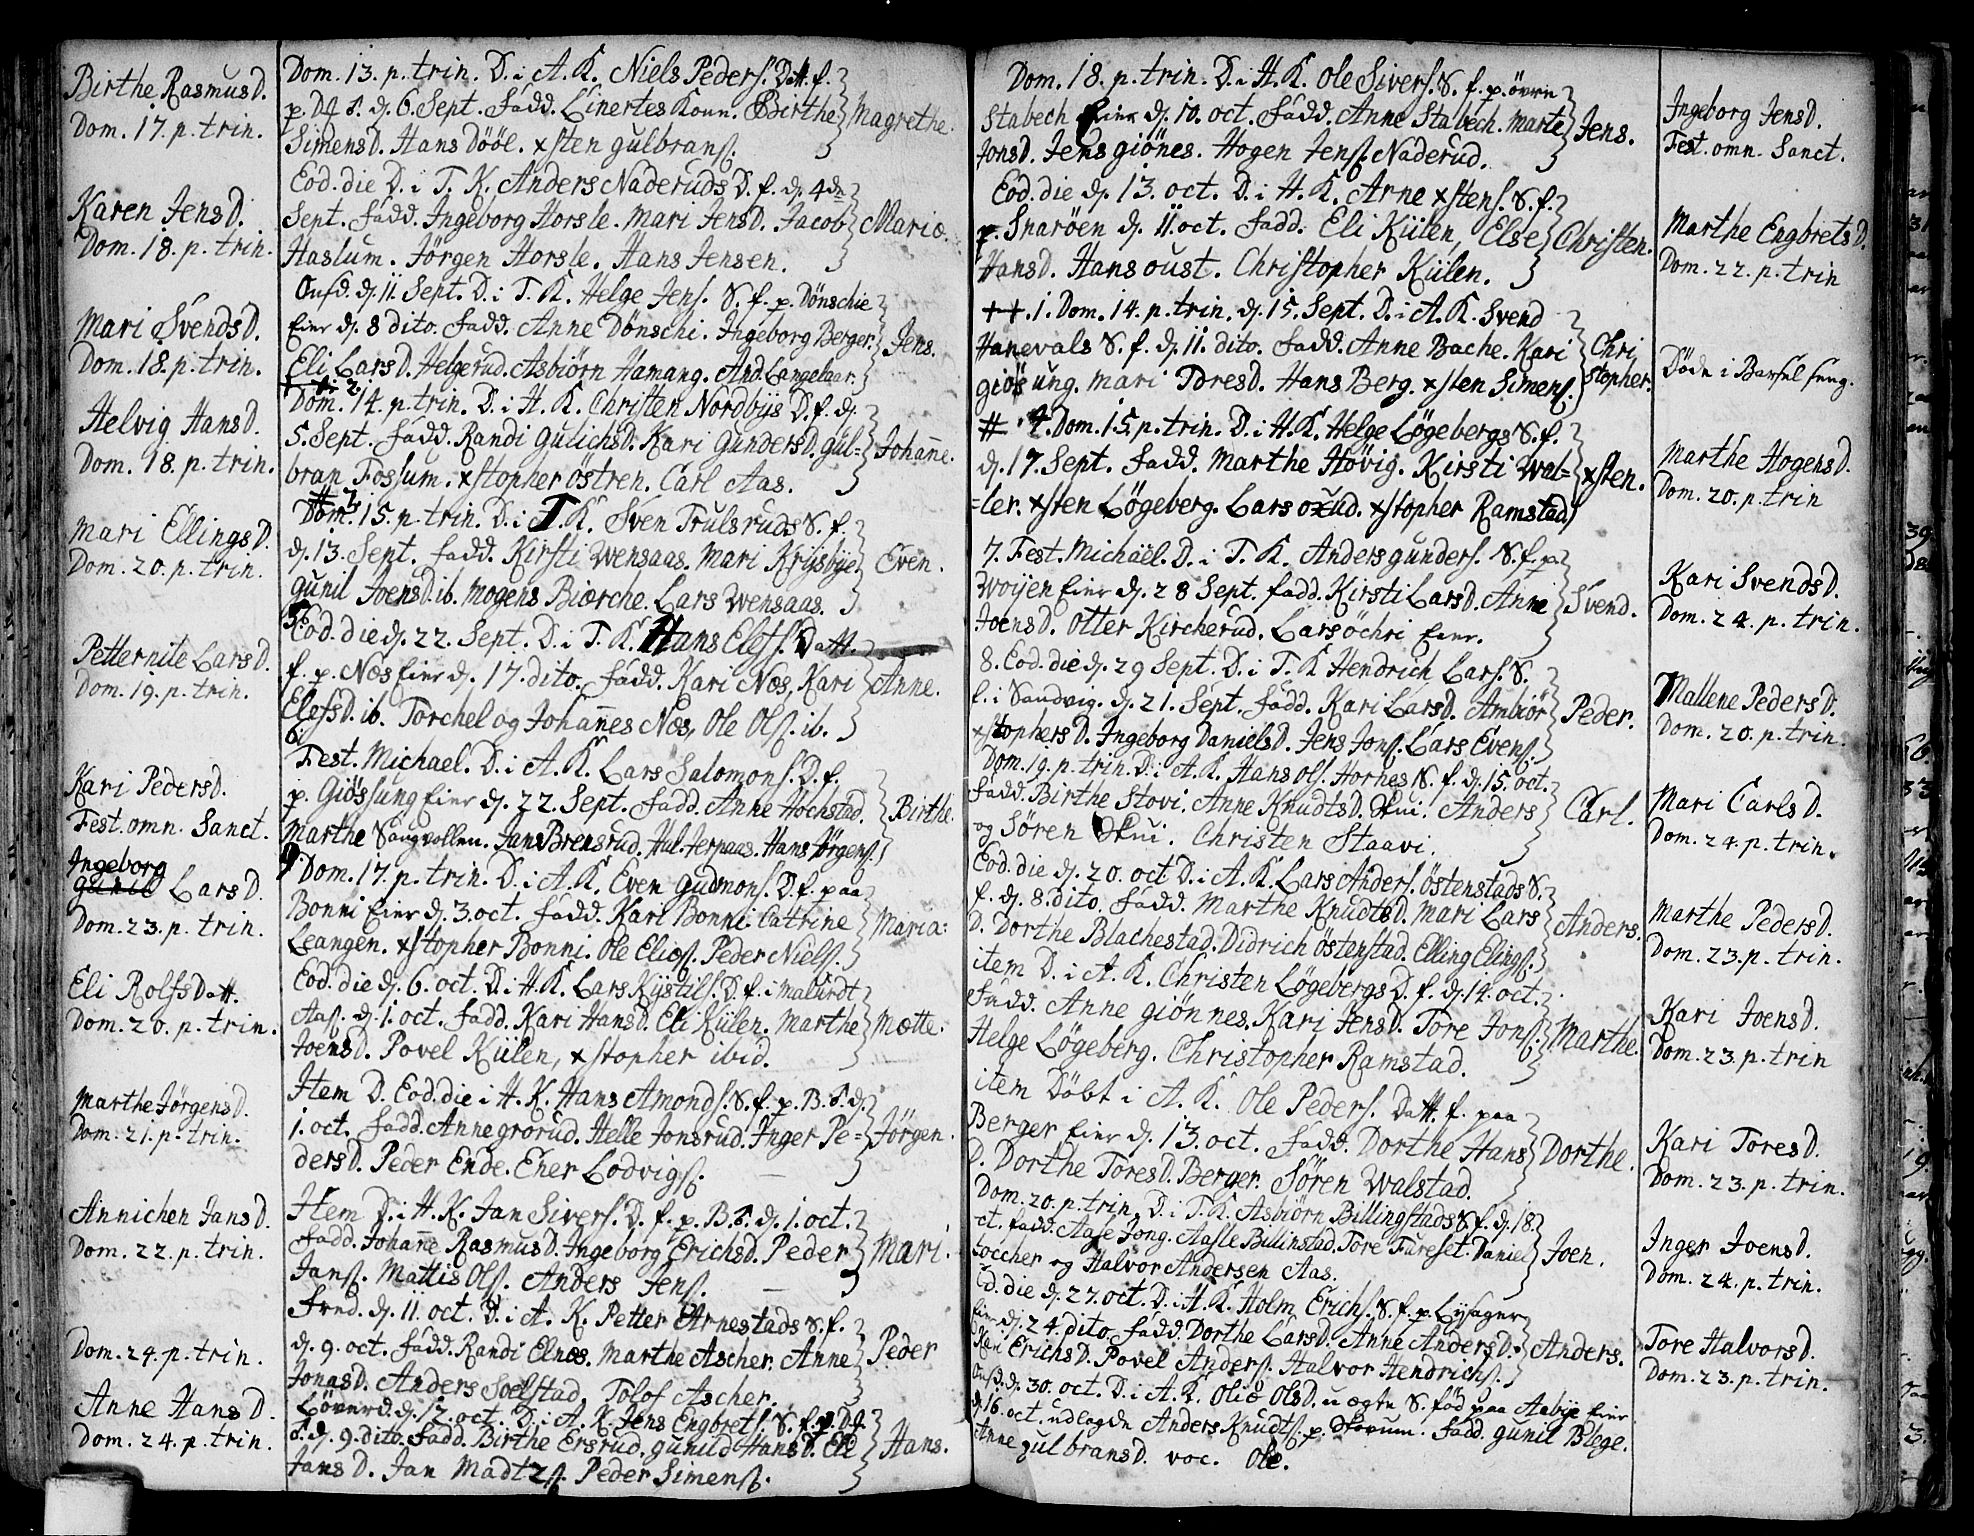 Birthe RasmusD.
Dom. 17. p. trin.
Dom. 13. p. trin. D. i A. K. Niels Peders. Datt. f.
p. DJ d. 6. Sept. Fadd. Linertes Konn. Birthe
SimensD. Hans Dööl. xsten gulbrans.
Magrethe.
Karen JensD.
Dom. 18. p. trin.
Eod. die D. i T. K. Anders Naderuds D. f. d. 4de
Sept. Fadd. Ingeborg Horsle. Mari JensD. Jacob
Haslum. Jörgen Horsle. Hans Jensen.
Mari SvendsD.
Dom. 18. p. trin.
Onsd. d. 11 Sept. D. i T. K. Helge Jens. S. f. p. Dönschie
Eier d. 8 dito. Fadd. Anne Dönschi. Ingeborg Berger.
Eli LarsD. Helgerud. Asbiörn Hamang. And. Langelaar.
Jens.
Helvig HansD.
Dom. 18. p. trin.
2.
Dom. 14. p. trin. D. i H. K. Christen Nordbÿs D. f. d.
5. Sept. Fadd. Randi GulichsD. Kari GundersD. gul=
bran Fossum. xstopher östren. Carl Aas.
Johañe.
Mari EllingsD.
Dom. 20. p. trin.
Dom. 15. p. trin. D. i T. K. Sven Trulsruds S. f.
d. 13. Sept. Fadd. Kirsti Wensaas. Mari Krÿsbÿe
gunil JoensD. ib. Mogens Biærche. Lars Wensaas.
Even.
Petternile LarsD.
Dom. 19. p. trin.
5.
Eod. die d. 22. Sept. D. i T. K. Hans Elefs. Datt.
f. p. Næs Eier d. 17. dito. Fadd. Kari Næs. Kari
ElefsD. ib. Torchel og Johañes Næs, Ole Ols. ib.
Anne.
Kari PedersD.
Fest. omn. Sanct.
6.
Fest. Michael. D. i A. K. Lars Salomons. D. f.
p. Giössung Eier d. 22. Sept. Fadd. Anne Hochstad.
Marthe Sangvollen. Jan Brensrud. Hal. Jerpaas. Hans Jörgens.
Birthe.
Ingeborg
LarsD.
Dom. 23. p. trin.
9. Dom. 17. p. trin. D. i A. K. Even Gudmons. D. f. paa
Bonni Eier d. 3. oct. Fadd. Kari Bonni. Catrine
Leangen. xstopher Bonni. Ole Elies. Peder Niels.
Maria.
Eli RolfsDatt.
Dom. 20. p. trin.
Eod. die d. 6. oct. D. i H. K. Lars Kÿstils. D. f. i Malurdt
Aas. d. 1. oct. Fadd. Kari HansD. Eli Kiilen. Marthe
JoensD. Povel Kiilen, xstopher ibid.
Mætte.
Marthe JörgensD.
Dom. 21. p. trin.
Item D. Eod. die i H. K. Hans Amonds. S. f. p. B. d.
1. oct. Fadd. Anne grorud. Helle Jonsrud. Inger Pe=
dersD. Peder Ende. Ener Lodvigs.
Jörgen.
Annichen JansD.
Dom. 22. p. trin.
Item D. i H. K. Jan Sivers. D. f. p. B. d. 1. oct.
Fadd. Johañe RasmusD. Ingeborg ErichsD. Peder
Jans. Mattis Ols. Anders Jens.
Mari.
Dom. 24. p. trin.
d. 11. oct. D. i A. K. Petter Arnestads S. f.
d. 9. oct. Fadd. Randi Elnæs. Marthe Ascher. Anne
JonasD. Anders Soelstad. Tolof Ascher.
Peder
Anne HansD.
Dom. 24. p. trin.
Löverd. d. 12. oct. D. i A. K. Jens Engbrets. S. f. p. DJ
d. 9. dito. Fadd. Birthe Ersrud. gunild HansD. Eli
JansD. Jan Madtzs. Peder Simens.
Hans.
Dom. 18. p. trin. D. i H. K. Ole Sivers. S. f. p. övre
Stabech Eier d. 10. oct. Fadd. Anne Stabech. Marte
JonsD. Jens giönes. Hogen Jens. Naderud.
Jens.
Ingeborg JensD.
Fest. omn. Sanct.
Eod. die d. 13. oct. D. i H. K. Arne xstens. S. f.
p. Snaröen d. 11. oct. Fadd. Eli Kiilen, Else
HansD. Hans oust. Christopher Kiilen.
Christen.
Marthe EngbretsD.
Dom. 22. p. trin
++. 1. Dom. 14. p. trin. d. 15. Sept. D. i A. K. Svend
Hanevals S. f. d. 11. dito. Fadd. Anne Bache. Kari
giösung. Mari ToresD. Hans Berg. xsten Simens.
Chri
stopher.
Döde i Barsel seng.
# 4. Dom. 15. p. trin. D. i H. K. Helge Lögebergs S. f.
d. 17. Sept. Fadd. Marthe Hövig. Kirsti Wal=
=ler. xsten Lögeberg. Lars oxud. xstopher Ramstad.
xsten.
Marthe HogensD.
Dom. 20. p. trin
7. Fest. Michäel. D. i T. K. Anders gunders. S. f. p.
Woÿen Eier d. 28 Sept. Fadd. Kirsti LarsD. Anne
JoensD. Otter Kircherud. Lars öchri Eier.
Svend.
Kari SvendsD.
Dom. 24. p. trin.
8. Eod. die d. 29 Sept. D. i T. K Hendrich Lars. S.
f. i Sandvig. d. 21. Sept. Fadd. Kari LarsD. Ambiör
xstophersD. Ingeborg DanielsD. Jens Jons. Lars Evens.
Peder.
Mallene PedersD.
Dom. 20. p. trin.
Dom. 19. p. trin. D. i A. K. Hans Ols. Hornes S. f. d. 15. oct.
Fadd. Birthe Stovi. Anne KnudtsD. Skui. Anders
og Sören Skui. Christen Staavi.
Carl.
Mari CarlsD.
Dom. 24. p. trin.
Eod. die d. 20. oct D. i A. K. Lars Anders. östenstads S.
f. d. 8. dito. Fadd. Marthe KnudtsD. Mari Lars
D. Dorthe Blachestad. Didrich östenstad. Elling Elings.
Anders.
Marthe PedersD.
Dom. 23. p. trin.
item D. i A. K. Christen Lögebergs D. f. d. 14. oct.
Fadd. Anne giönnes. Kari JensD. Tore Jons.
Helge Lögeberg. Christopher Ramstad.
Marthe.
Kari JoensD.
Dom. 23. p. trin
item Döbt i A. K. Ole Peders. Datt. f. paa
Berger Eier d. 13. oct. Fadd. Dorthe Hans
D. Dorthe ToresD. Berger. Sören Walstad.
Dorthe.
Kari ToresD.
Dom. 23. p. trin.
Dom. 20. p. trin. D. i T. K. Asbiörn Billingstads S. f. d. 18.
ct. Fadd. Aase Jong. Aasle Billinstad. Tore Fureset. Daniel
Loccher og Halvor Andersen Aas.
Joen.
Inger JoensD.
Dom. 24. p. trin.
Eod. die d. 27. oct. D. i A. K. Holm Erichs. S. f. p. Lÿsager
Eier d. 24. dito. Fadd. Dorthe LarsD. Anne AndersD.
Kari ErichsD. Povel Anders. Halvor Hendrichs.
Anders.
Tore HalvorsD.
Dom. 23. p. trin.
Onsd. d. 30. oct. D. i A. K. Oliæ OlsD. uægte S. föd paa Aabÿe Eier
d. 16. oct. udlagde Anders Knudts. p. Skovum. Fadd. gunil Blege.
Anne gulbransD. voc. Ole.